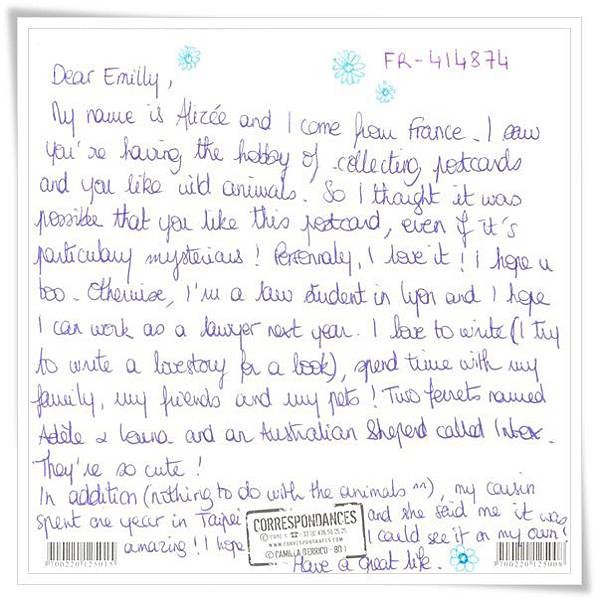 FR-414874
Dear Emilly,
My name is Alizée and I come from France. I saw
you're having the hobby of collecting postcards
and you like wild animals. So I thaight it was
possible that you like this postcard, even if it's
particulary mysterious! Personnaly, I love it! I hope u
too. Otherwise, I'm a law student in Lyon and I hope
I can work as a lawyer next year. I love to write (I try
to write a lovestory for a book), spend time with my
family, my friends and my pets! Two ferrets named
Adèle & Louna and an Australian Sheperd called
They're so cute!
In addition (nothing to do with the animals ^^), my cousin
spent one year in Taipei and she said me it was
amazing! I hope I could see it on my own!
Have a Great life.
CORRESPONDANCES
© CAMILLA D'ERRICO - 801
9700220125015
9700220125008